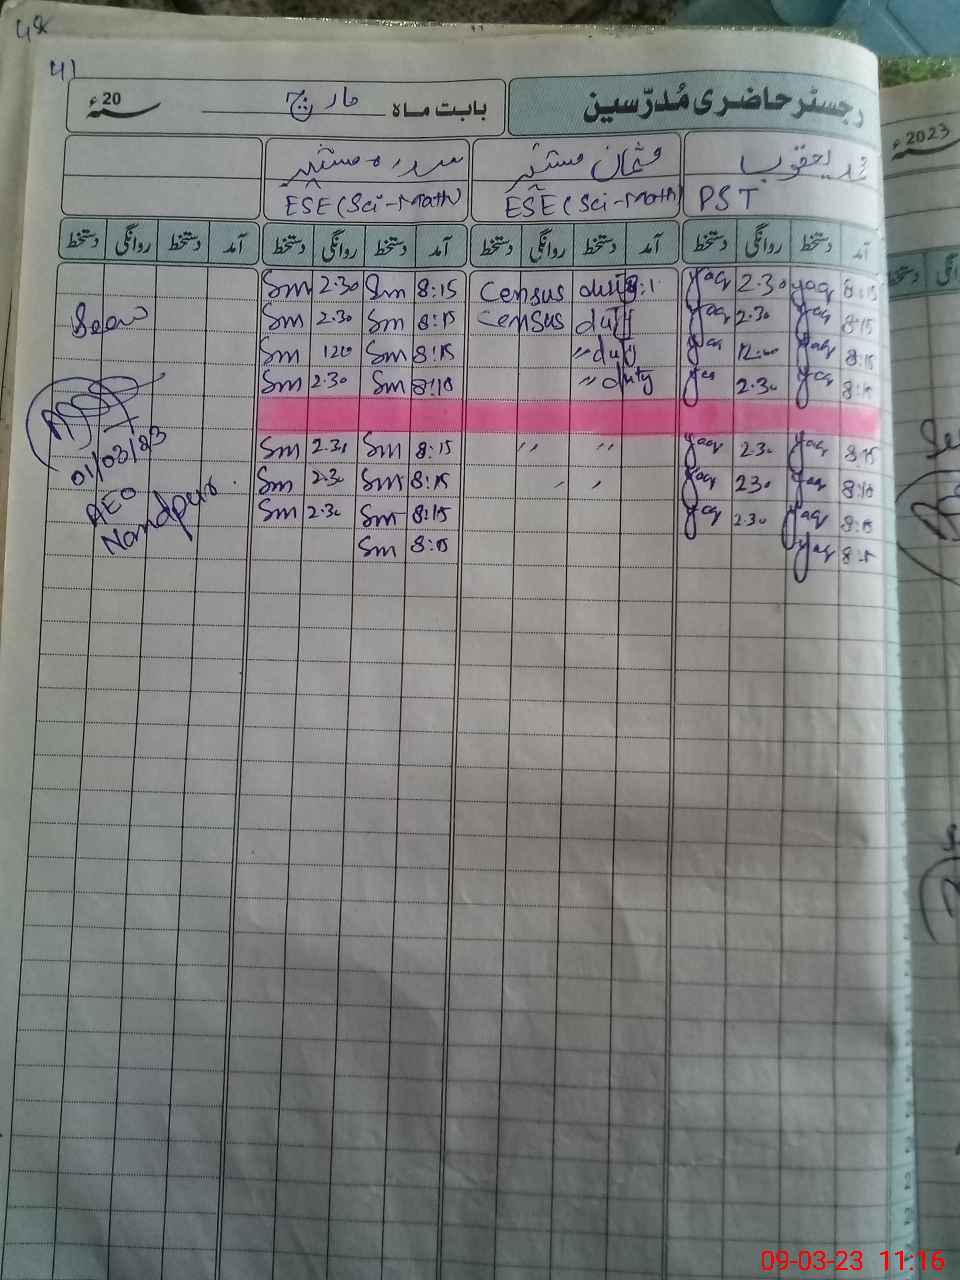 41
رجسٹر حاضری مُدرّسین
بابت ماہ مارچ
20ء
2023ء
محمد یعقوب
PST
ESE (Sci-Math)
ESE (Sci-Math)
آمد دستخط روانگی دستخط آمد دستخط روانگی دستخط آمد دستخط روانگی دستخط آمد دستخط روانگی دستخط
Sm 2.30 Sm 8:15 Census duty yaq 2.30 yaq 8:15
Seen Sm 2.30 Sm 8:15 Census duty yaq 2.30 yaq 8:15
Sm Sm 8:15 " duty yaq yaq 8:15
Sm 2.30 Sm 8:15 " duty 2.30 yaq 8:15
Sm 2.30 Sm 8:15 " " yaq 2.30 yaq 8:15
01/03/23
Sm 2.30 Sm 8:15 " " yaq 2.30 yaq 8:15
AEO
Sm 2.30 Sm 8:15 yaq 2.30 yaq 8:15
Nandpur.
Sm 8:15 yaq
09-03-23 11:16